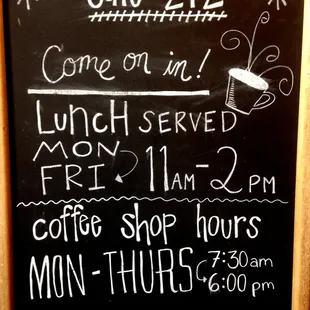 Come on in!
LUNCH SERVED
MON
FRI 11 AM - 2 PM
coffee shop hours
MON - THURS 7:30 am
6:00 pm